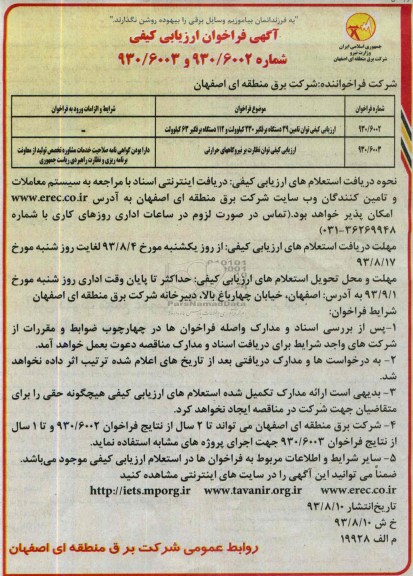 "به فرزندانمان بیاموزیم وسایل برقی را بیهوده روشن نگذارند."
آگهی فراخوان ارزیابی کیفی
شماره ۹۳۰/۶۰۰۲ و ۹۳۰/۶۰۰۳
جمهوری اسلامی ایران
وزارت نیرو
شرکت برق منطقه ای اصفهان
شرکت فراخواننده:شرکت برق منطقه ای اصفهان
شماره فراخوان موضوع فراخوان شرایط و الزامات ورود به فراخوان
۹۳۰/۶۰۰۲ ارزیابی کیفی توان تامین ۲۹ دستگاه برقگیر ۲۳۰ کیلوولت و ۱۱۲ دستگاه برقگیر ۶۳ کیلوولت –
۹۳۰/۶۰۰۳ ارزیابی کیفی توان نظارت بر نیروگاههای حرارتی دارا بودن گواهی نامه صلاحیت خدمات مشاوره تخصص تولید از معاونت
برنامه ریزی و نظارت راهبردی ریاست جمهوری
نحوه دریافت استعلام های ارزیابی کیفی: دریافت اینترنتی اسناد با مراجعه به سیستم معاملات
و تامین کنندگان وب سایت شرکت برق منطقه ای اصفهان به آدرس www.erec.co.ir
امکان پذیر خواهد بود.(تماس در صورت لزوم در ساعات اداری روزهای کاری با شماره
۰۳۱-۳۶۲۶۹۹۴۸)
مهلت دریافت استعلام های ارزیابی کیفی: از روز یکشنبه مورخ ۹۳/۸/۴ لغایت روز شنبه مورخ
۹۳/۸/۱۷
مهلت و محل تحویل استعلام های ارزیابی کیفی: حداکثر تا پایان وقت اداری روز شنبه مورخ
۹۳/۹/۱ به آدرس: اصفهان، خیابان چهارباغ بالا، دبیرخانه شرکت برق منطقه ای اصفهان
شرایط فراخوان:
۱-پس از بررسی اسناد و مدارک واصله فراخوان ها در چهارچوب ضوابط و مقررات از
شرکت های واجد شرایط برای دریافت اسناد و مدارک مناقصه دعوت بعمل خواهد آمد.
۲- به درخواست ها و مدارک دریافتی بعد از تاریخ های اعلام شده ترتیب اثر داده نخواهد
شد.
۳- بدیهی است ارائه مدارک تکمیل شده استعلام های ارزیابی کیفی هیچگونه حقی را برای
متقاضیان جهت شرکت در مناقصه ایجاد نخواهد کرد.
۴- شرکت برق منطقه ای اصفهان می تواند تا ۲ سال از نتایج فراخوان ۹۳۰/۶۰۰۲ و تا ۱ سال
از نتایج فراخوان ۹۳۰/۶۰۰۳ جهت اجرای پروژه های مشابه استفاده نماید.
۵- سایر شرایط و اطلاعات مربوط به فراخوان ها در استعلام ارزیابی کیفی موجود می‌باشد.
ضمناً می توانید این آگهی را در سایت های اینترنتی مشاهده کنید
http://iets.mporg.ir www.tavanir.org.ir www.erec.co.ir
تاریخ انتشار ۹۳/۸/۱۰
خ ش ۹۳/۸/۱۰
م الف ۱۹۹۲۸
روابط عمومی شرکت برق منطقه ای اصفهان